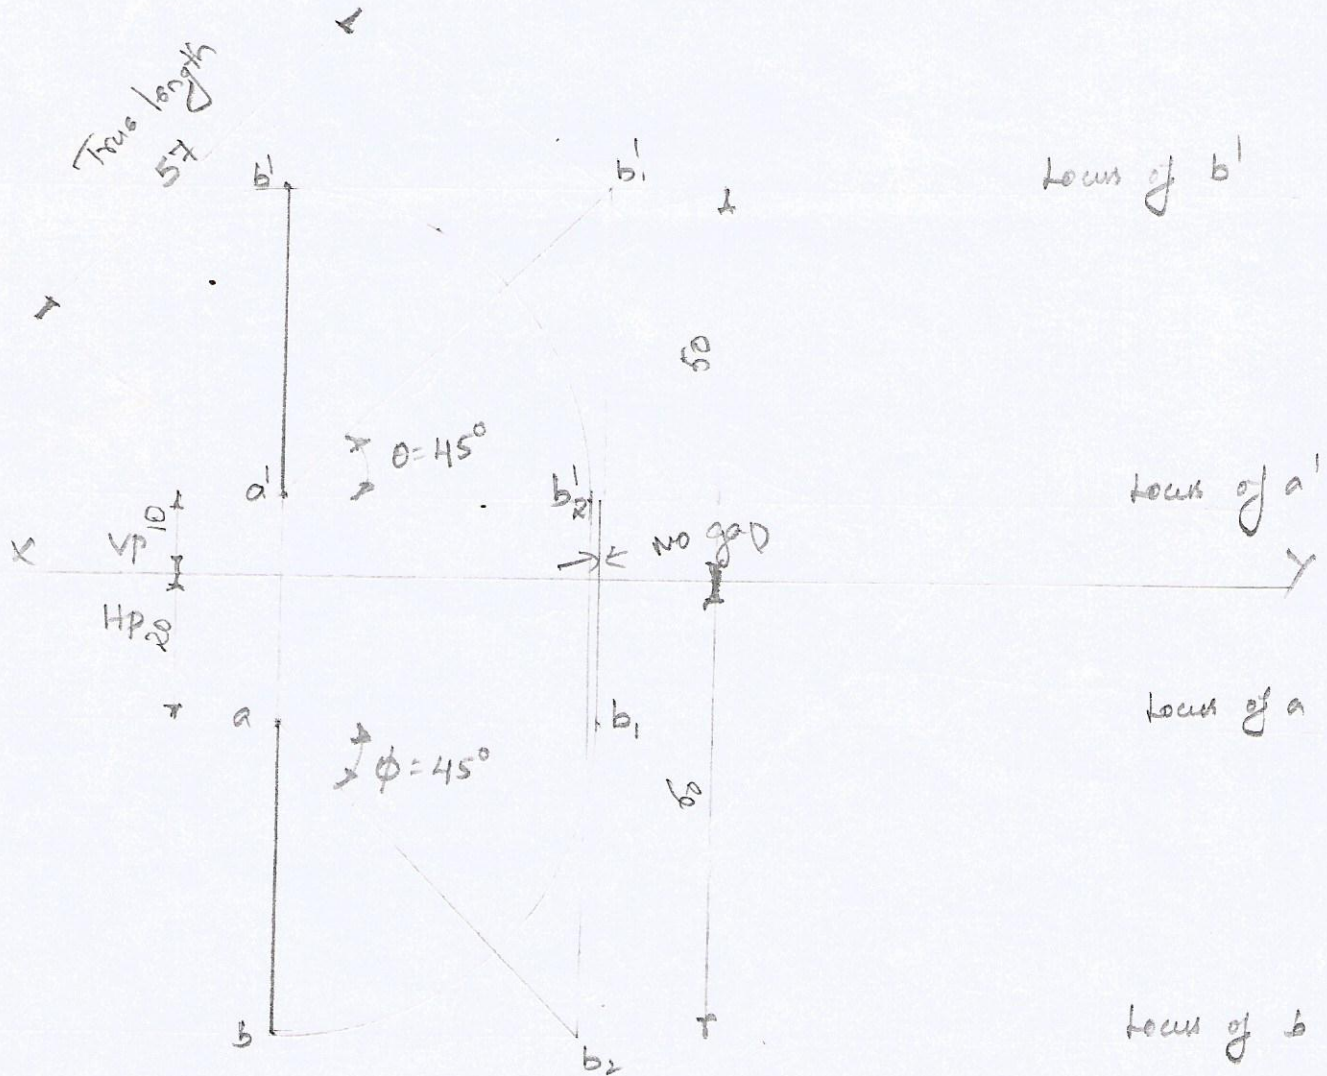 True length
57
b'
b'₁
Locus of b'
50
θ=45°
a'
b'₂
Locus of a'
10
VP
X
No gap
Y
HP
20
a
b₁
Locus of a
φ=45°
60
b
b₂
Locus of b